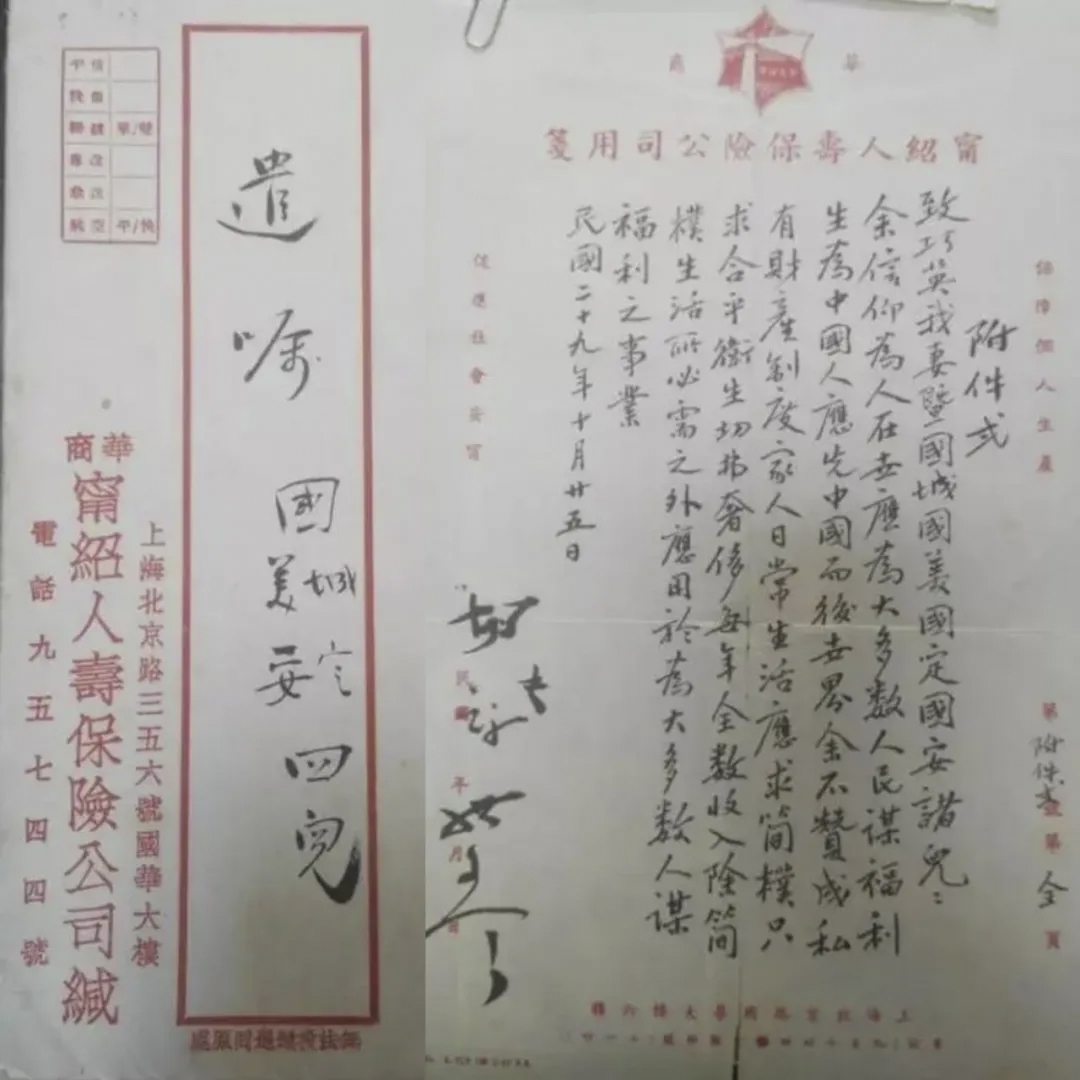 平信
快信
掛號 單/雙
航空 平/快
遺囑 國城 國美 國定 國安 四兒
上海北京路三五六號國華大樓
華商
甯紹人壽保險公司緘
電話九五七四四號
無法投遞退回原處
華商
甯紹人壽保險公司用箋
保障個人生產
促進社會安甯
附件弍
致巧英我妻暨國城國美國定國安諸兒:
余信仰為人在世應為大多数人民謀福利
生為中國人應先中國而後世界余不贊成私
有財產制度家人日常生活應求简樸只
求合乎衛生切弗奢侈每年全数收入除简
樸生活所必需之外應用於為大多数人謀
福利之事業
民國二十九年十月廿五日
胡詠骐
民國 年 月 日
第 附件弍 號第 全 頁